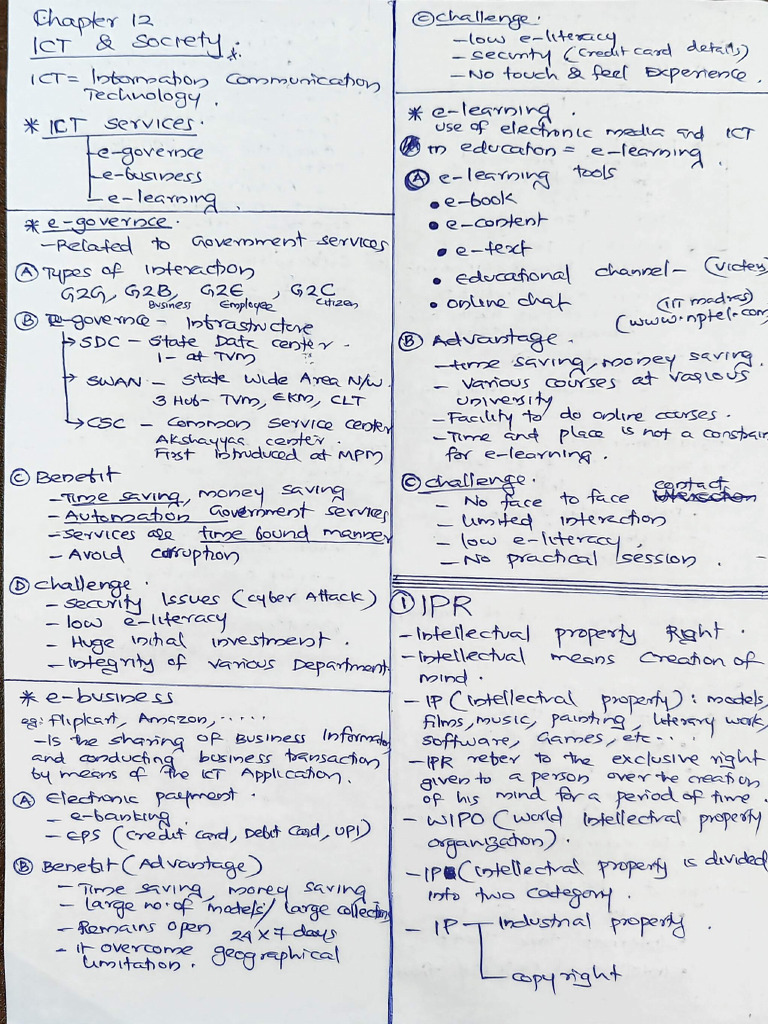 Chapter 12
ICT & Society.
*
ICT = Information Communication
Technology.
* ICT services.
- e-governce
- e-business
- e-learning
* e-governce.
- Related to Government services
Ⓐ Types of interaction
G2G, G2B, G2E, G2C
Business Employee Citizen
Ⓑ e-governce - Intrastructure
→ SDC - State Data center.
1 - at TVM
→ SWAN - State Wide Area N/W.
3 Hub - TVM, EKM, CLT
→ CSC - Common service center
Akshayyaa center.
First introduced at MPM
Ⓒ Benefit
- Time saving, money saving
- Automation Government services
- Services are time bound manner
- Avoid corruption
Ⓓ challenge.
- security Issues (cyber Attack)
- low e-literacy
- Huge initial investment.
- Integrity of various Department
* e-business
eg: flipkart, Amazon, .....
- Is the sharing of Business Information
and conducting business transaction
by means of the ICT Application.
Ⓐ Electronic payment.
- e-banking
- EPS (credit card, Debit card, UPI)
Ⓑ Benefit (Advantage)
- Time saving, money saving
- large no. of models / large collection
- Remains open 24x7 days
- it overcome geographical
limitation.
Ⓒ challenge.
- low e-literacy
- security (credit card details)
- No touch & feel Experience.
* e-learning.
use of electronic media and ICT
in education = e-learning.
Ⓐ e-learning tools
• e-book
• e-content
• e-text
• educational channel - (victers)
• online chat (IIT madras)
(www.nptel.com)
Ⓑ Advantage.
- time saving, money saving.
- Various courses at various
university
- Facility to do online courses.
- Time and place is not a constrain
for e-learning.
Ⓒ challenge.
- No face to face contact
- limited interection
- low e-literacy.
- No practical session.
① IPR
- Intellectual property Right.
- Intellectual means creation of
mind.
- IP (intellectual property): models,
films, music, painting, literary work,
software, Games, etc...
- IPR refer to the exclusive right
given to a person over the creation
of his mind for a period of time.
- WIPO (World intellectual property
organization).
- IP (intellectral property is divided
into two category.
- IP - Industrial property.
- copyright